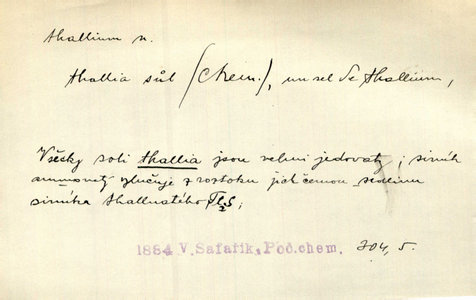 thallium n.
thallia sůl (chem.), un sel de thallium,
Všecky soli thallia jsou velmi jedovaty; sirník
ammonatý vylučuje z roztoku jich černou sedlinu
sirníka thallnatého Tl2S;
1884 V. Šafařík, Poč. chem. 304, 5.